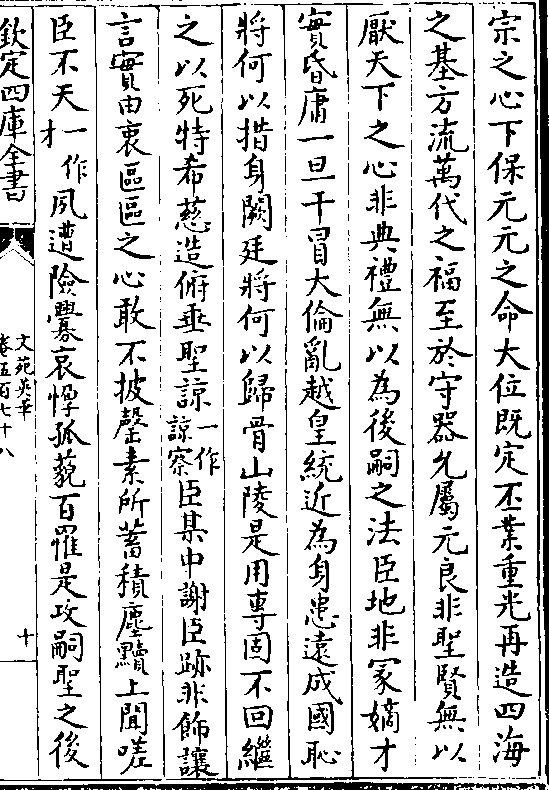 宗之心下保元元之命大位既定丕業重光再造四海
之基方流萬代之福至於守器允屬元良非聖賢無以
厭天下之心非典禮無以為後嗣之法臣地非冢嫡才
實昏庸一旦干冒大倫亂越皇統近為身患遠成國恥
將何以措身闕廷將何以歸骨山陵是用專固不回繼
之以死特希慈造俯垂聖諒一作諒察臣某中謝臣跡非飾讓
言實由衷區區之心敢不披罄素所蓄積塵黷上聞嗟
臣不天一作才夙遭險釁哀惸孤藐百罹是攻嗣聖之後
欽定四庫全書
文苑英華
卷五百七十八
十